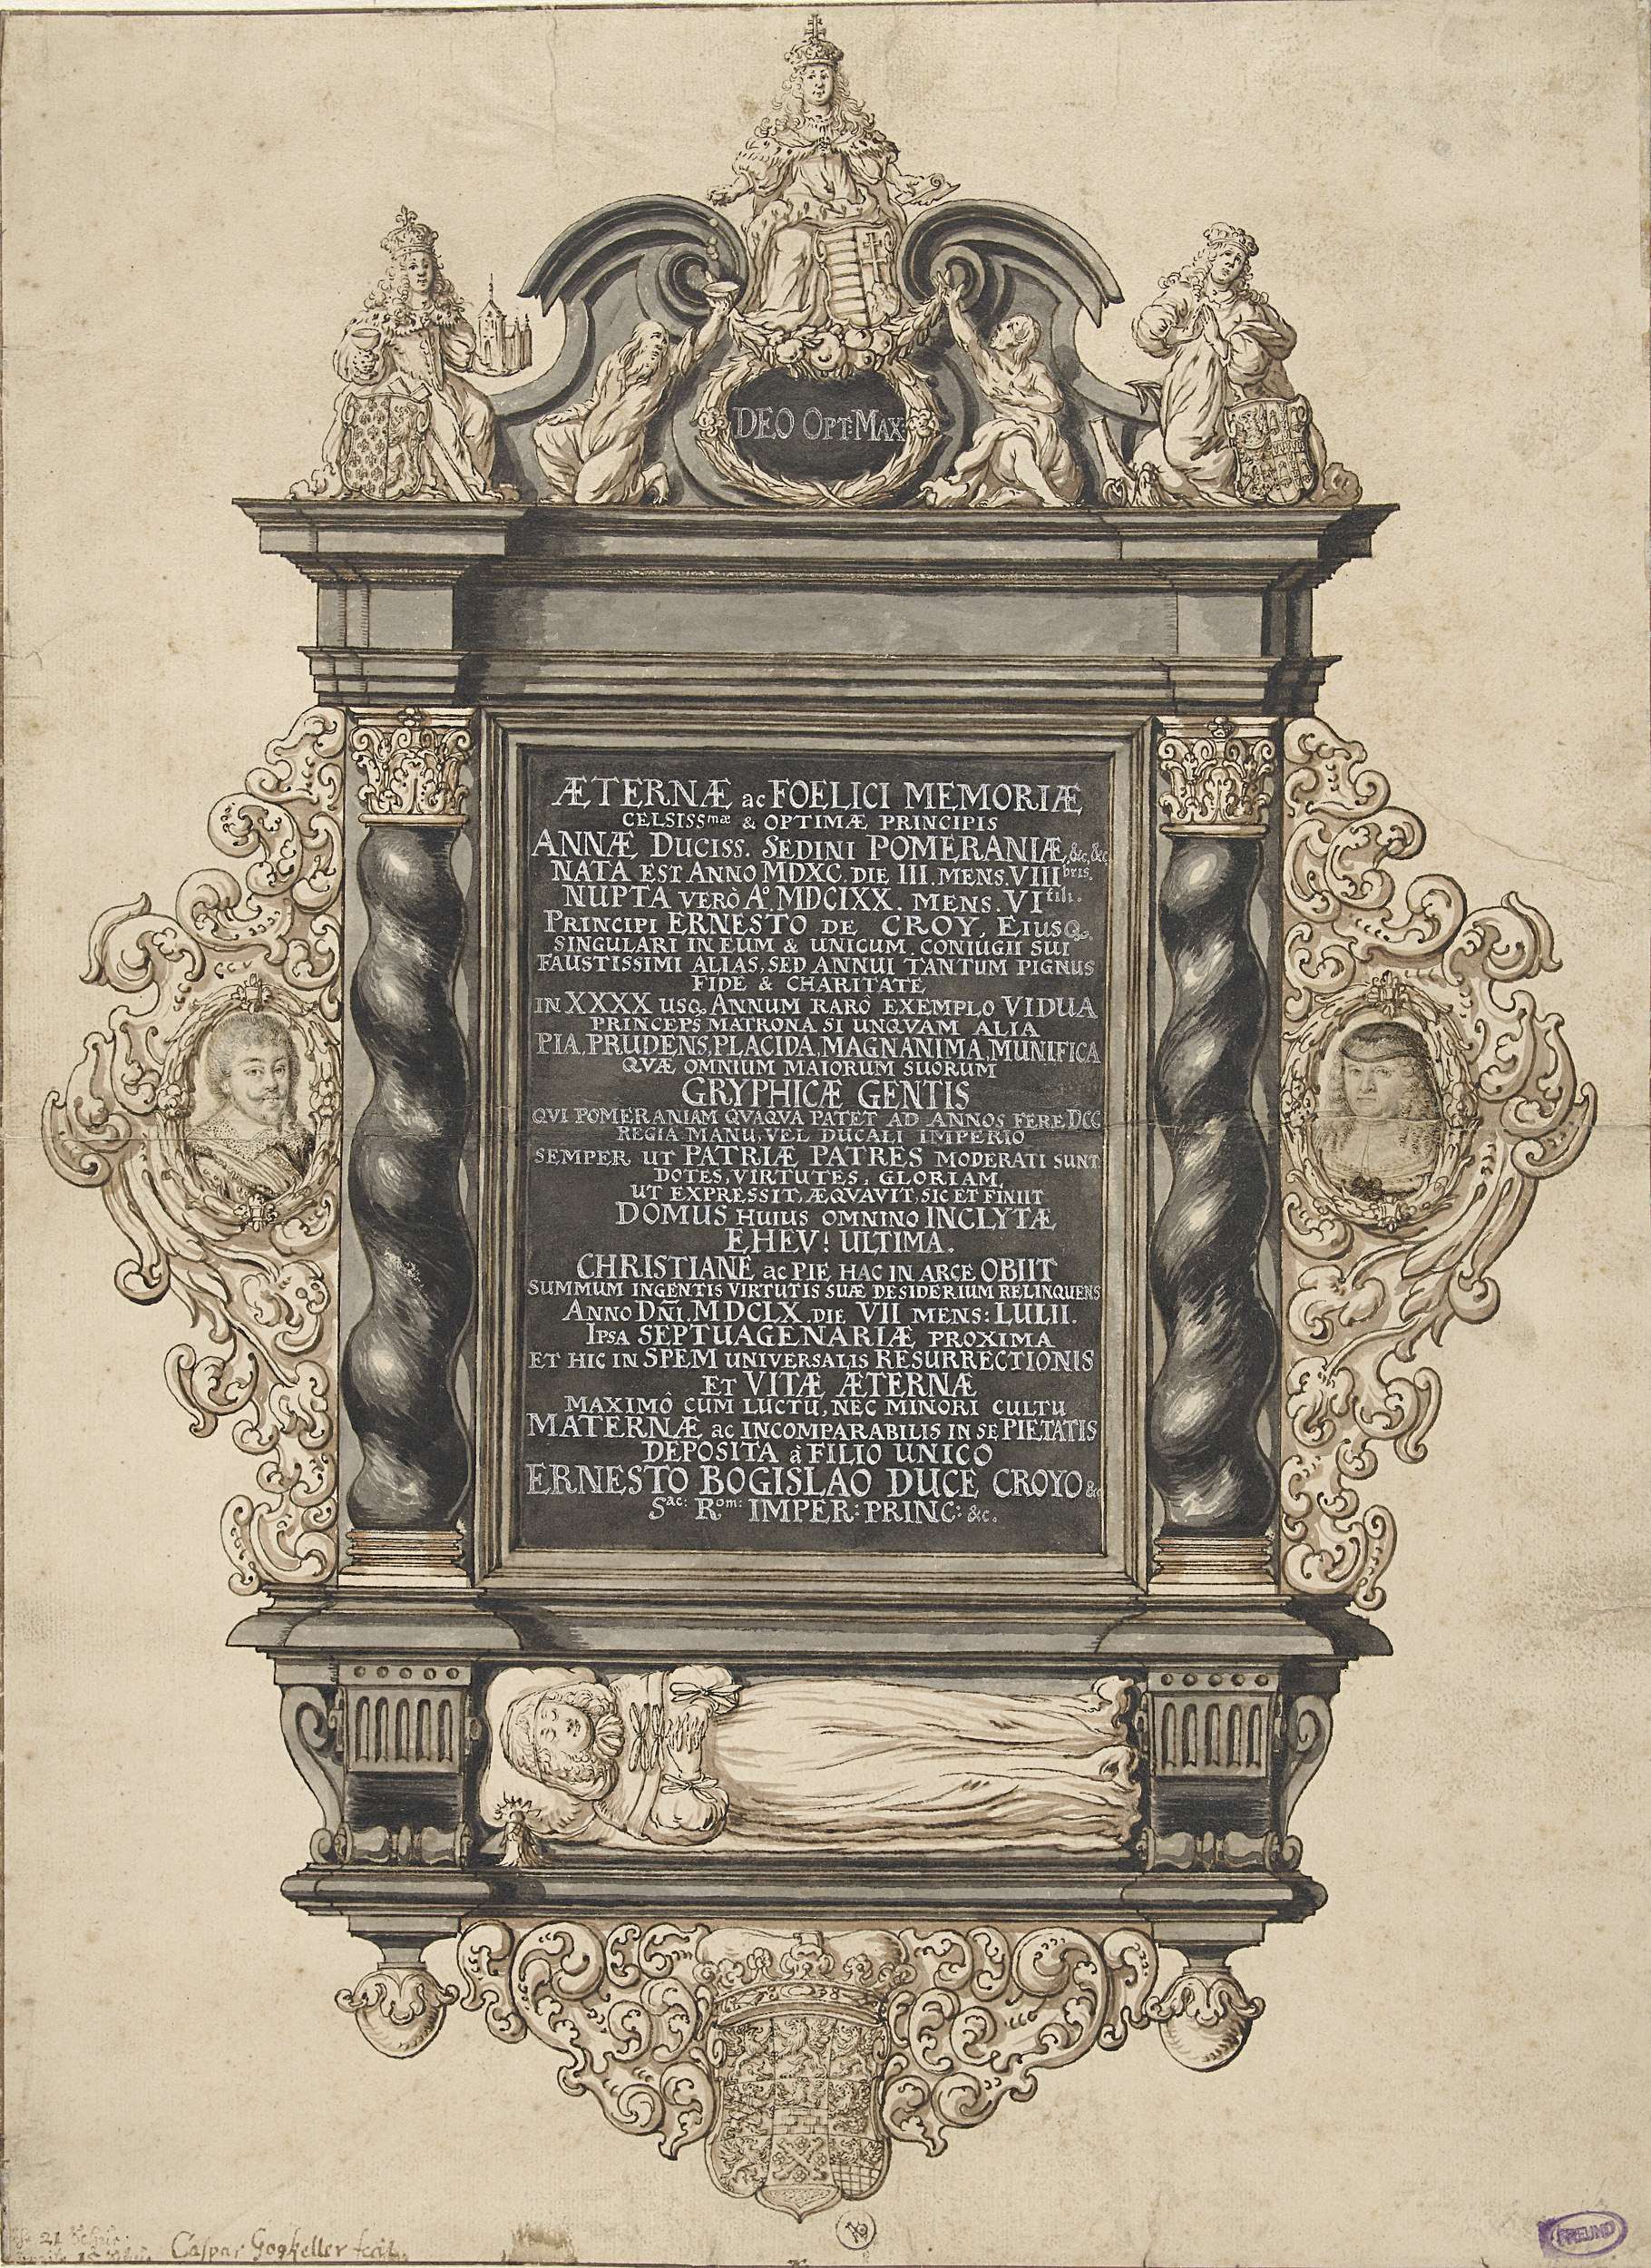 DEO OPT: MAX:
ÆTERNÆ ac FOELICI MEMORIÆ
CELSISSmæ & OPTIMÆ PRINCIPIS
ANNÆ DUCISS. SEDINI POMERANIÆ, &c, &c
NATA EST ANNO MDXC. DIE III. MENS. VIIIbris.
NUPTA VERÒ Ao. MDCIXX. MENS. VItili.
PRINCIPI ERNESTO DE CROY, EIUSQ.
SINGULARI IN EUM & UNICUM, CONIUGII SUI
FAUSTISSIMI ALIAS, SED ANNUI TANTUM PIGNUS
FIDE & CHARITATE
IN XXXX USQ. ANNUM RARÔ EXEMPLO VIDUA
PRINCEPS MATRONA SI UNQVAM ALIA
PIA, PRUDENS, PLACIDA, MAGNANIMA, MUNIFICA
QVÆ OMNIUM MAIORUM SUORUM
GRYPHICÆ GENTIS
QVI POMERANIAM QVAQVA PATET AD ANNOS FERE DCC
REGIA MANU, VEL DUCALI IMPERIO
SEMPER UT PATRIÆ PATRES MODERATI SUNT
DOTES, VIRTUTES, GLORIAM,
UT EXPRESSIT, ÆQVAVIT, SIC ET FINIIT
DOMUS HUIUS OMNINO INCLYTÆ
EHEV! ULTIMA.
CHRISTIANE ac PIE HAC IN ARCE OBIIT
SUMMUM INGENTIS VIRTUTIS SUÆ DESIDERIUM RELINQUENS
ANNO DÑI. MDCLX. DIE VII MENS: LULII.
IPSA SEPTUAGENARIÆ PROXIMA
ET HIC IN SPEM UNIVERSALIS RESURRECTIONIS
ET VITÆ ÆTERNÆ
MAXIMÔ CUM LUCTU, NEC MINORI CULTU
MATERNÆ ac INCOMPARABILIS IN SE PIETATIS
DEPOSITA à FILIO UNICO
ERNESTO BOGISLAO DUCE CROYO &c
Sac: Rom: IMPER: PRINC: &c.
Caspar Gogkeller fecit.
FREUND